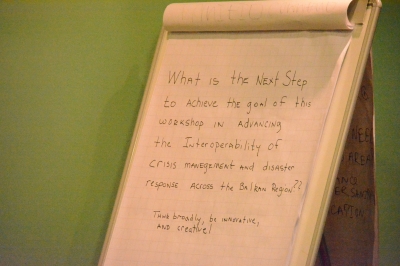 What is the Next Step
to achieve the goal of this
workshop in advancing
the Interoperability of
crisis manegement and disaster
response across the Balkan Region??
Think broadly, be innovative,
and creative!
NEE
AREA
AND